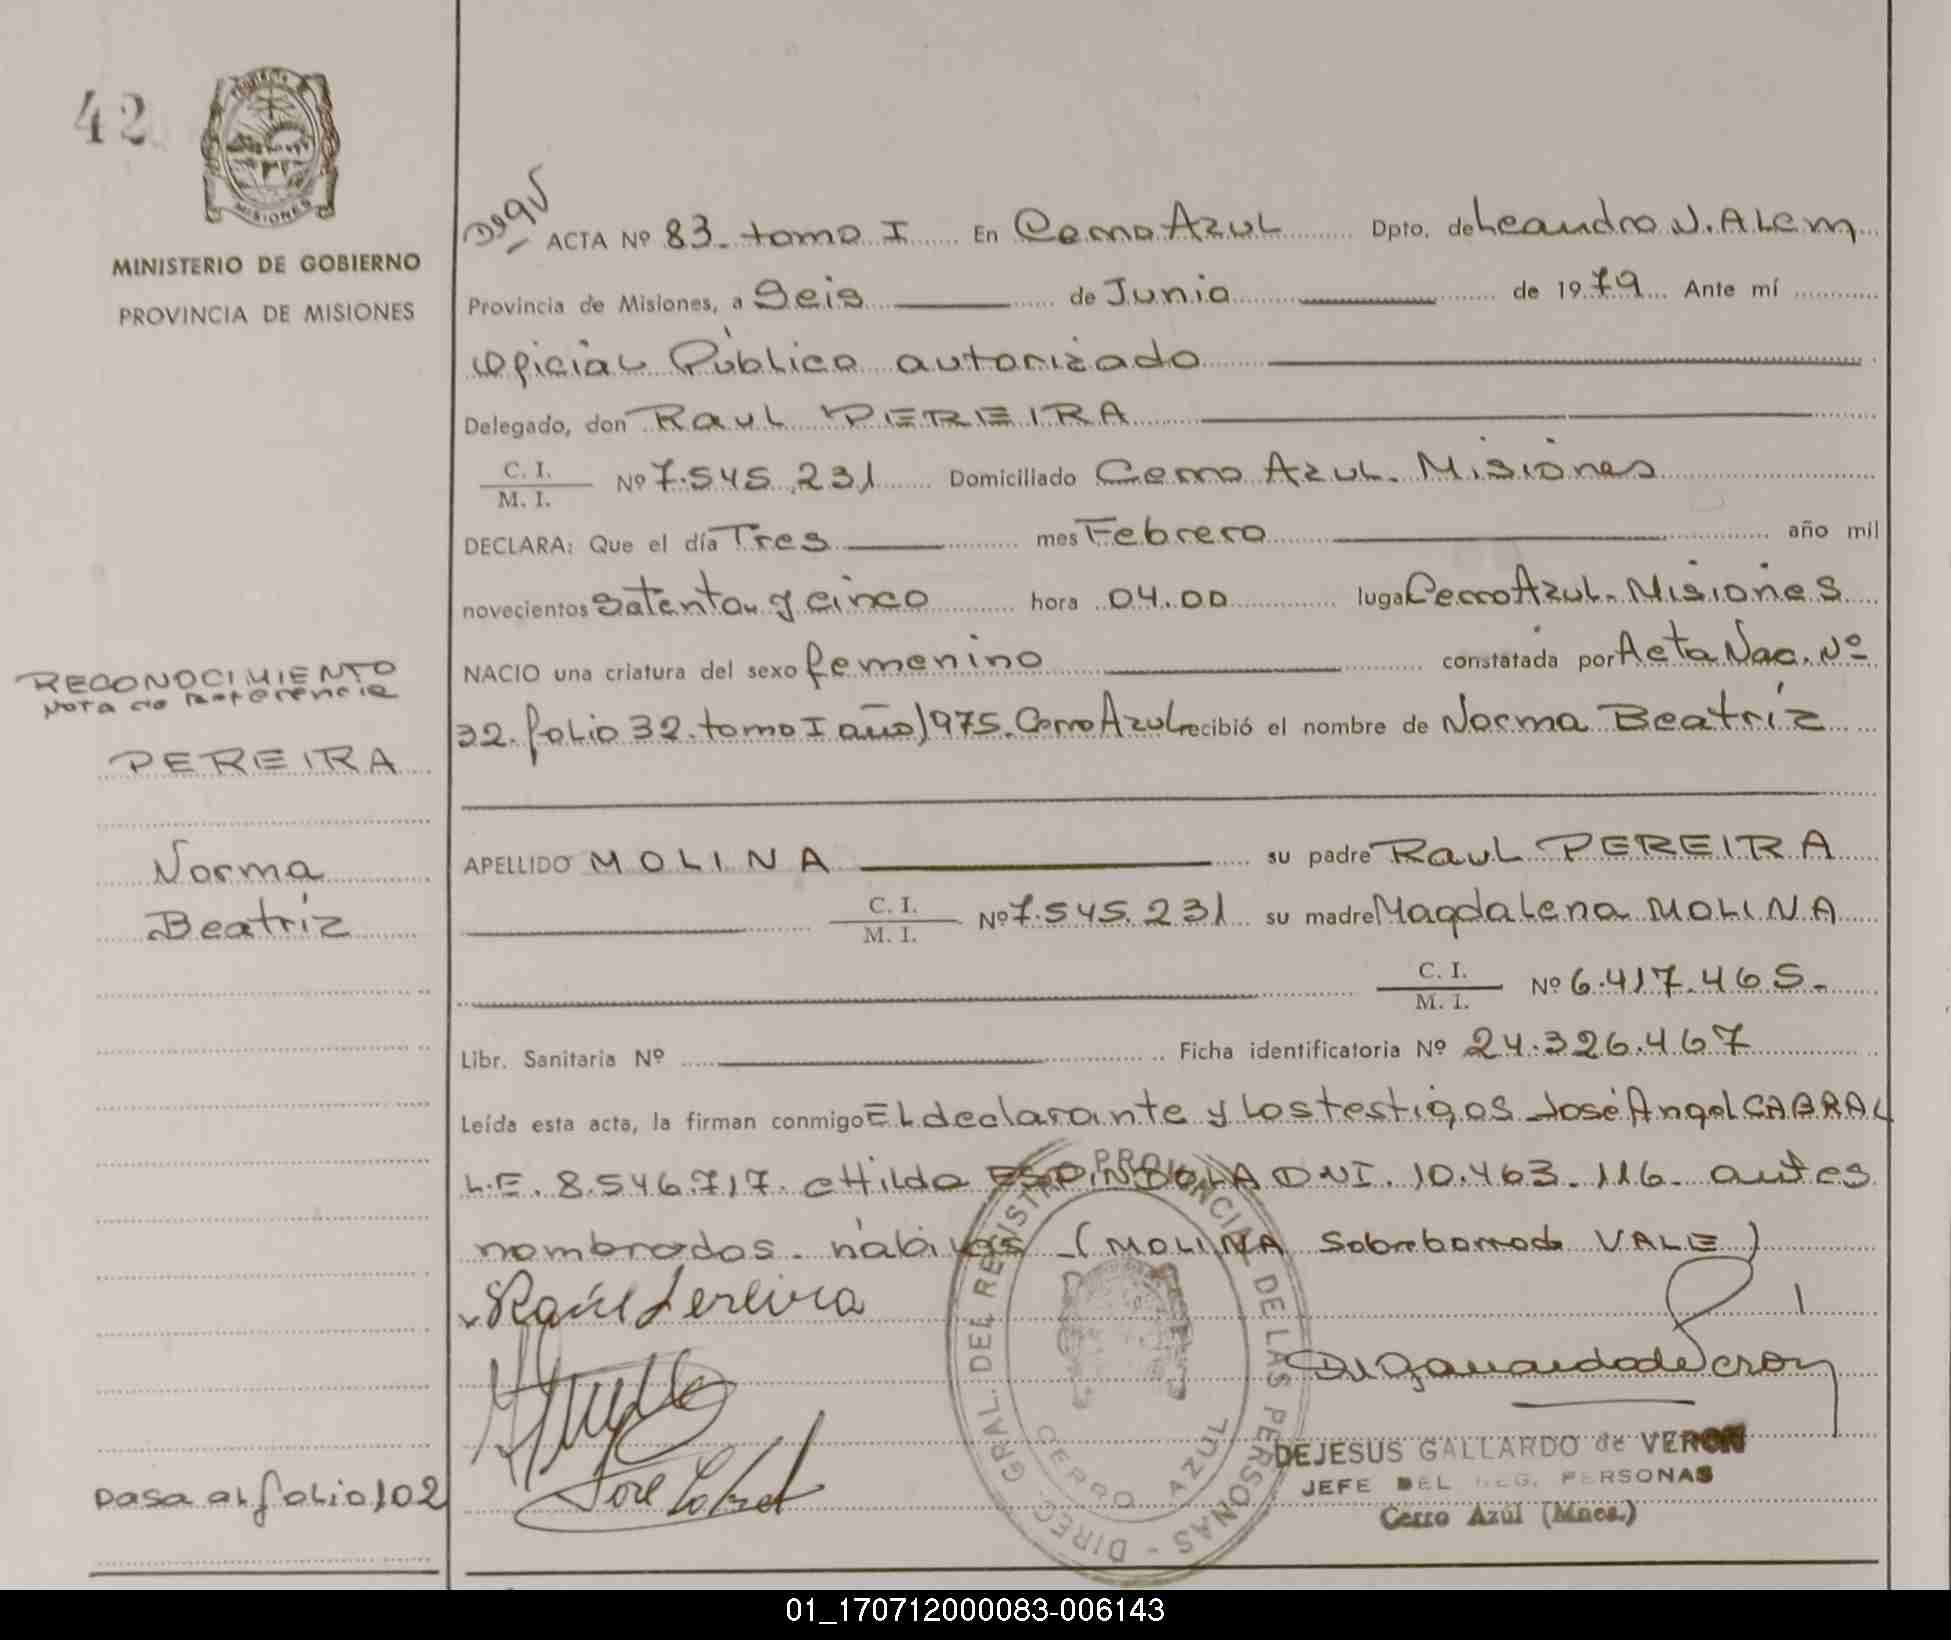 42
MISIONES
MINISTERIO DE GOBIERNO
PROVINCIA DE MISIONES
ACTA Nº 83. tomo I En Cerro Azul Dpto. de Leandro N. ALem
Provincia de Misiones, a Seis de Junio de 1979 Ante mí
oficial Público autorizado
Delegado, don Raul PEREIRA
C. I.
M. I. Nº 7.545.231 Domiciliado Cerro Azul. Misiones
DECLARA: Que el día Tres mes Febrero año mil
novecientos setenta y cinco hora 04.00 lugar Cerro Azul. Misiones
NACIO una criatura del sexo femenino constatada por Acta Nac. Nº
32. folio 32. tomo I año 1975. Cerro Azul recibió el nombre de Norma Beatríz
RECONOCIMIENTO
Nota de Referencia
PEREIRA
Norma
Beatríz
APELLIDO MOLINA su padre Raul PEREIRA
C. I.
M. I. Nº 7.545.231 su madre Magdalena MOLINA
C. I.
M. I. Nº 6.417.465.
Libr. Sanitaria Nº Ficha identificatoria Nº 24.326.467
Leída esta acta, la firman conmigo El declarante y los testigos José Angel CABRAL
L.E. 8.546.717. e Hilda ESPINDOLA DNI. 10.463.116. antes
nombrados. hábiles (MOLINA Sobreborrado VALE)
Raúl Pereira
DIREC. GRAL. DEL REGISTRO PROVINCIAL DE LAS PERSONAS -
CERRO AZUL
DEJESUS GALLARDO de VERON
JEFE DEL REG. PERSONAS
Cerro Azúl (Mnes.)
Pasa al folio 102
01_170712000083-006143